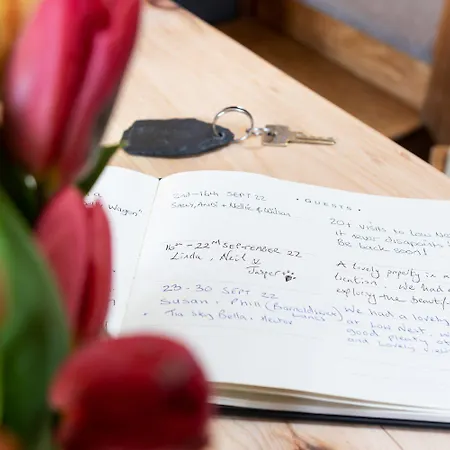 Wagon"
2nd-16th SEPT 22
GUESTS
20+ visits to Low Nest
it never disapoints
Be back soon!
16th - 22nd SEPTEMBER 22
Linda, Neil
&
Jasper
A lovely property in a
location. We had
exploring the beautif
23 - 30 SEPT 22
Susan, Phil
Tia Sky Bella, Hector
We had a lovely
at Low Nest.
good plenty of
and lovely